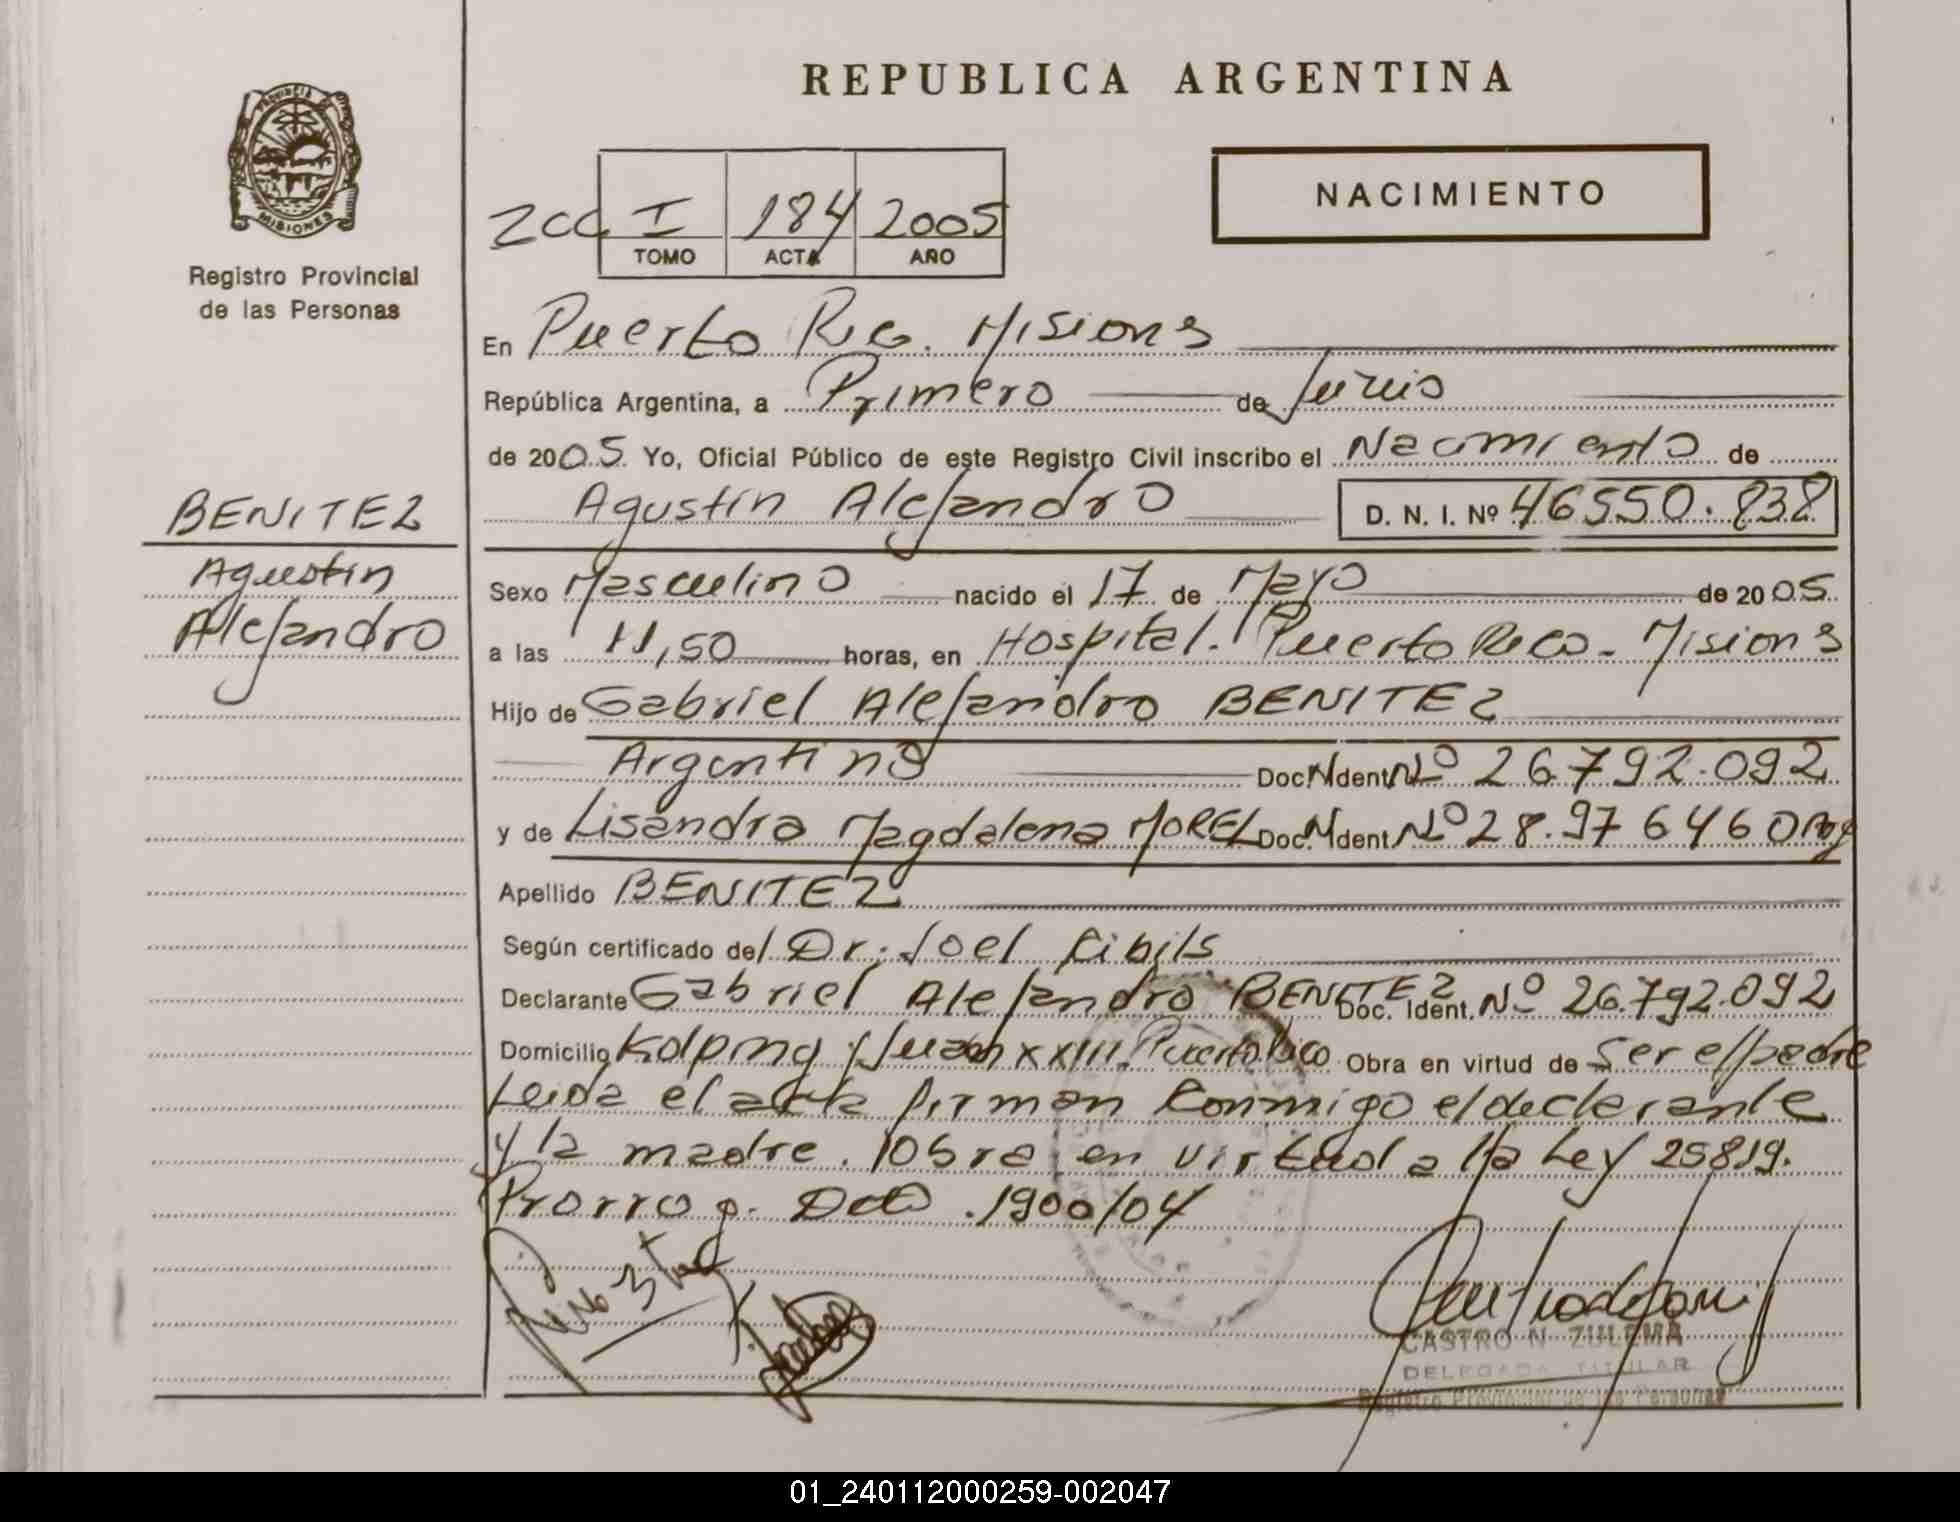 REPUBLICA ARGENTINA
PROVINCIA DE
MISIONES
Registro Provincial
de las Personas
NACIMIENTO
I 184 2005
TOMO ACTA AÑO
En Puerto Rico. Misiones
República Argentina, a Primero de Junio
de 2005. Yo, Oficial Público de este Registro Civil inscribo el Nacimiento de
BENITEZ
Agustin Alejandro D. N. I. Nº 46550.838
Agustin
Alejandro
Sexo Masculino nacido el 17 de Mayo de 2005.
a las 11,50 horas, en Hospital. Puerto Rico - Misiones
Hijo de Gabriel Alejandro BENITEZ
Argentino Doc. Ident. Nº 26.792.092
y de Lisandra Magdalena MOREL Doc. Ident. Nº 28.976460 Arg
Apellido BENITEZ
Según certificado del Dr. Joel Cibils
Declarante Gabriel Alejandro BENITEZ Doc. Ident. Nº 26.792.092
Domicilio Kolping y Juan XXIII. Puerto Rico Obra en virtud de Ser el padre
Leida el acta firman Conmigo el declarante
y la madre. Obra en virtud a la Ley 25819.
Prorrog. Dcto. 1900/04
CASTRO N. ZULEMA
DELEGADA TITULAR
Registro Provincial de las Personas
01_240112000259-002047